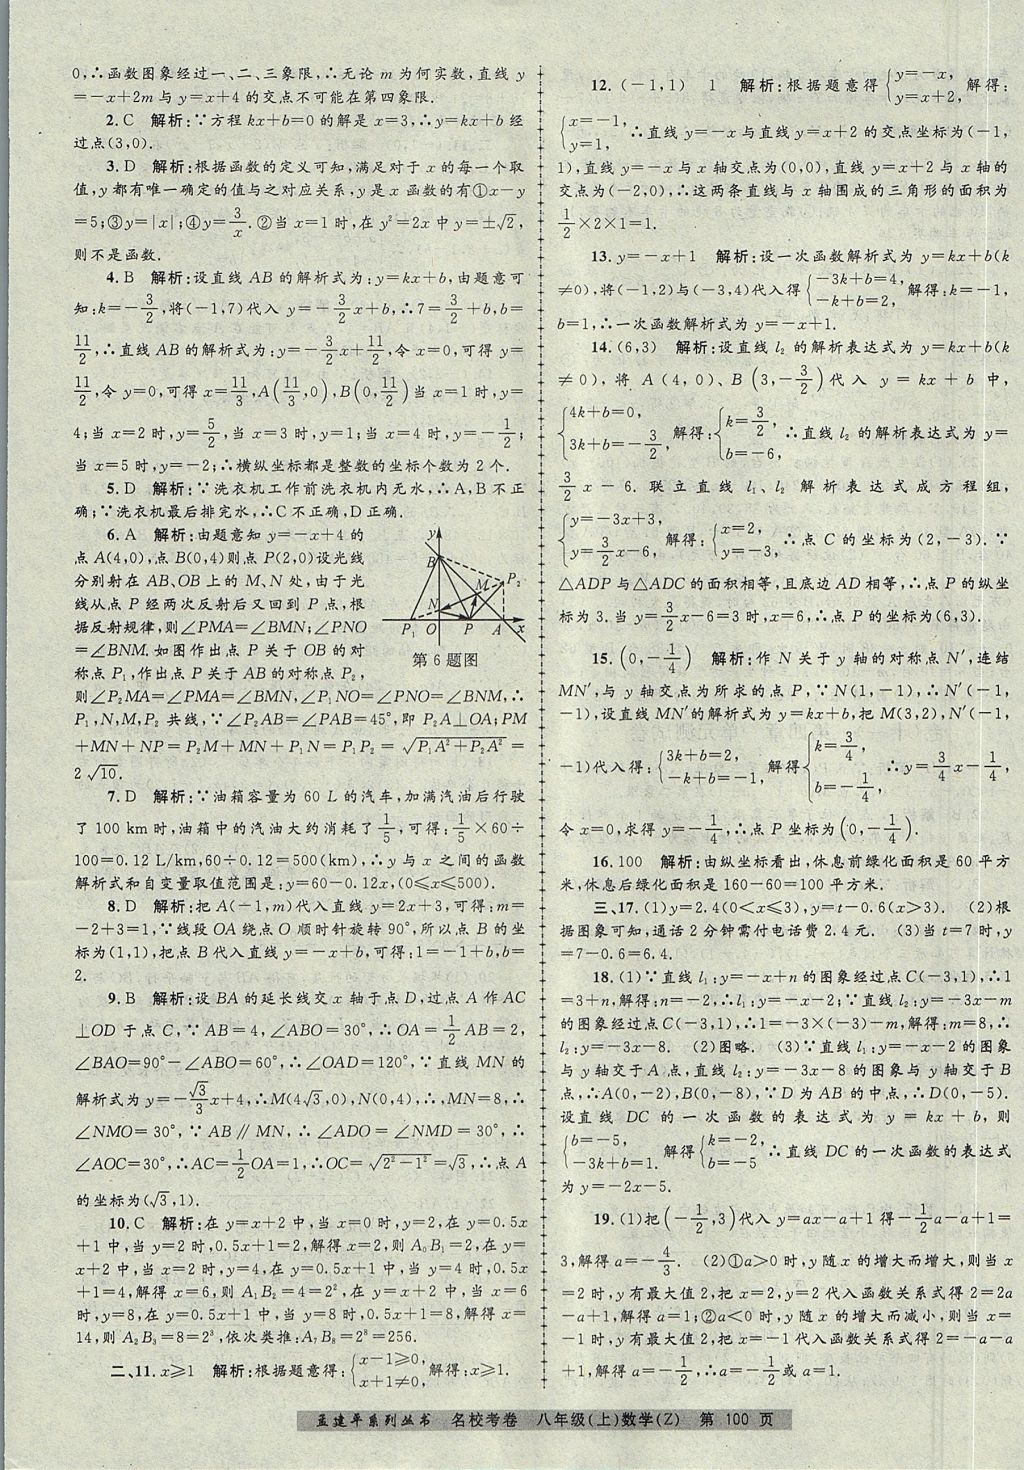 0,∴函数图象经过一、二、三象限,∴无论 m 为何实数,直线 y
=-x+2m 与 y=x+4 的交点不可能在第四象限.
2.C 解析:∵方程 kx+b=0 的解是 x=3,∴y=kx+b 经
过点(3,0).
3.D 解析:根据函数的定义可知,满足对于 x 的每一个取
值,y 都有唯一确定的值与之对应关系,y 是 x 函数的有①x-y
=5;③y=|x|;④y=3/x.②当 x=1 时,在 y²=2x 中 y=±√2,
则不是函数.
4.B 解析:设直线 AB 的解析式为:y=kx+b,由题意可
知:k=-3/2,将(-1,7)代入 y=-3/2x+b,∴7=3/2+b,b=
11/2,∴直线 AB 的解析式为:y=-3/2x+11/2,令 x=0,可得 y=
11/2,令 y=0,可得 x=11/3,A(11/3,0),B(0,11/2)当 x=1 时,y=
4;当 x=2 时,y=5/2,当 x=3 时,y=1;当 x=4 时,y=-1/2;
当 x=5 时,y=-2;∴横纵坐标都是整数的坐标个数为 2 个.
5.D 解析:∵洗衣机工作前洗衣机内无水,∴A,B 不正
确;∵洗衣机最后排完水,∴C 不正确,D 正确.
6.A 解析:由题意知 y=-x+4 的
点 A(4,0),点 B(0,4)则点 P(2,0)设光线
分别射在 AB、OB 上的 M、N 处,由于光
线从点 P 经两次反射后又回到 P 点,根
据反射规律,则∠PMA=∠BMN;∠PNO
=∠BNM.如图作出点 P 关于 OB 的对
称点 P₁,作出点 P 关于 AB 的对称点 P₂,
y
B
M
P₂
N
P₁ O P A x
第 6 题图
则∠P₂MA=∠PMA=∠BMN,∠P₁NO=∠PNO=∠BNM,∴
P₁,N,M,P₂ 共线,∵∠P₂AB=∠PAB=45°,即 P₂A⊥OA;PM
+MN+NP=P₂M+MN+P₁N=P₁P₂=√(P₁A²+P₂A²)=
2√10.
7.D 解析:∵油箱容量为 60 L 的汽车,加满汽油后行驶
了 100 km 时,油箱中的汽油大约消耗了1/5,可得:1/5×60÷
100=0.12 L/km,60÷0.12=500(km),∴y 与 x 之间的函数
解析式和自变量取值范围是:y=60-0.12x,(0≤x≤500).
8.D 解析:把 A(-1,m)代入直线 y=2x+3,可得:m=
-2+3=1,∵线段 OA 绕点 O 顺时针旋转 90°,所以点 B 的坐
标为(1,1),把点 B 代入直线 y=-x+b,可得:1=-1+b,b=
2.
9.B 解析:设 BA 的延长线交 x 轴于点 D,过点 A 作 AC
⊥OD 于点 C,∵AB=4,∠ABO=30°,∴OA=1/2AB=2,
∠BAO=90°-∠ABO=60°,∴∠OAD=120°,∵直线 MN 的
解析式为 y=-√3/3x+4,∴M(4√3,0),N(0,4),∴,MN=8,∴
∠NMO=30°,∵AB∥MN,∴∠ADO=∠NMD=30°,∴
∠AOC=30°,∴AC=1/2OA=1,∴OC=√(2²-1²)=√3,∴点 A
的坐标为(√3,1).
10.C 解析:在 y=x+2 中,当 x=0 时,y=2,在 y=0.5x
+1 中,当 y=2 时,0.5x+1=2,解得 x=2,则 A₀B₁=2,在 y=x+2
中,当 x=2 时,y=4,在 y=0.5x+1 中,当 y=4 时,0.5x
+1=4,解得 x=6,则 A₁B₂=4=2²,在 y=x+2 中,当 x=6
时,y=8,在 y=0.5x+1 中,当 y=8 时,0.5x+1=8,解得 x=
14,则 A₂B₃=8=2³,依次类推:A₇B₈=2⁸=256.
二、11.x≥1 解析:根据题意得:{x-1≥0, x+1≠0,解得:x≥1.
12.(-1,1) 1 解析:根据题意得{y=-x, y=x+2,解得:
{x=-1, y=1,∴直线 y=-x 与直线 y=x+2 的交点坐标为(-1,
1),直线 y=-x 与 x 轴交点为(0,0),直线 y=x+2 与 x 轴的
交点为(-2,0),∴这两条直线与 x 轴围成的三角形的面积为
1/2×2×1=1.
13.y=-x+1 解析:设一次函数解析式为 y=kx+b(k
≠0),将(-1,2)与(-3,4)代入得{-3k+b=4, -k+b=2,解得:k=-1,
b=1,∴一次函数解析式为 y=-x+1.
14.(6,3) 解析:设直线 l₂ 的解析表达式为 y=kx+b(k
≠0),将 A(4,0)、B(3,-3/2)代入 y=kx+b 中,
{4k+b=0, 3k+b=-3/2,解得:{k=3/2, b=-6,∴直线 l₂ 的解析表达式为 y=
3/2x-6.联立直线 l₁、l₂ 解析表达式成方程组,
{y=-3x+3, y=3/2x-6,解得:{x=2, y=-3,∴点 C 的坐标为(2,-3).∵
△ADP 与△ADC 的面积相等,且底边 AD 相等,∴点 P 的纵坐
标为 3.当 y=3/2x-6=3 时,x=6,∴点 P 的坐标为(6,3).
15.(0,-1/4) 解析:作 N 关于 y 轴的对称点 N′,连结
MN′,与 y 轴交点为所求的点 P,∵N(1,-1),∴N′(-1,
-1),设直线 MN′的解析式为 y=kx+b,把 M(3,2),N′(-1,
-1)代入得:{3k+b=2, -k+b=-1,解得{k=3/4, b=-1/4,∴y=3/4x-1/4,
令 x=0,求得 y=-1/4,∴点 P 坐标为(0,-1/4).
16.100 解析:由纵坐标看出,休息前绿化面积是 60 平方
米,休息后绿化面积是 160-60=100 平方米.
三、17.(1)y=2.4(0<x≤3),y=t-0.6(x>3). (2)根
据图象可知,通话 2 分钟需付电话费 2.4 元. (3)当 t=7 时,y
=7-0.6=6.4.
18.(1)∵直线 l₁:y=-x+n 的图象经过点 C(-3,1),∴1
=3+n,解得:n=-2,∴l₁:y=-x-2;∵直线 l₂:y=-3x-m
的图象经过点 C(-3,1),∴1=-3×(-3)-m,解得:m=8,∴
l₂:y=-3x-8. (2)图略. (3)∵直线 l₁:y=-x-2 的图象
与 y 轴交于 A 点,直线 l₂:y=-3x-8 的图象与 y 轴交于 B
点,∴A(0,-2),B(0,-8),∵D 为 AB 的中点,∴D(0,-5).
设直线 DC 的一次函数的表达式为 y=kx+b,则
{b=-5, -3k+b=1. 解得{k=-2, b=-5 ∴直线 DC 的一次函数的表达式
为 y=-2x-5.
19.(1)把(-1/2,3)代入 y=ax-a+1 得-1/2a-a+1=
3,解得 a=-4/3. (2)①a>0 时,y 随 x 的增大而增大,则当 x
=2 时,y 有最大值 2,把 x=2,y=2 代入函数关系式得 2=2a
-a+1,解得 a=1;②a<0 时,y 随 x 的增大而减小,则当 x=
-1 时,y 有最大值 2,把 x=-1 代入函数关系式得 2=-a-a
+1,解得 a=-1/2,∴a=-1/2或 a=1.
孟建平系列丛书 名校考卷 八年级(上)数学(Z) 第 100 页